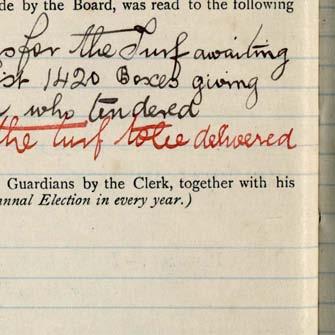 de by the Board, was read to the following
s for the Turf awaiting
ist 1420 Boxes giving
who tendered
the turf to be delivered
Guardians by the Clerk, together with his
nnual Election in every year.)